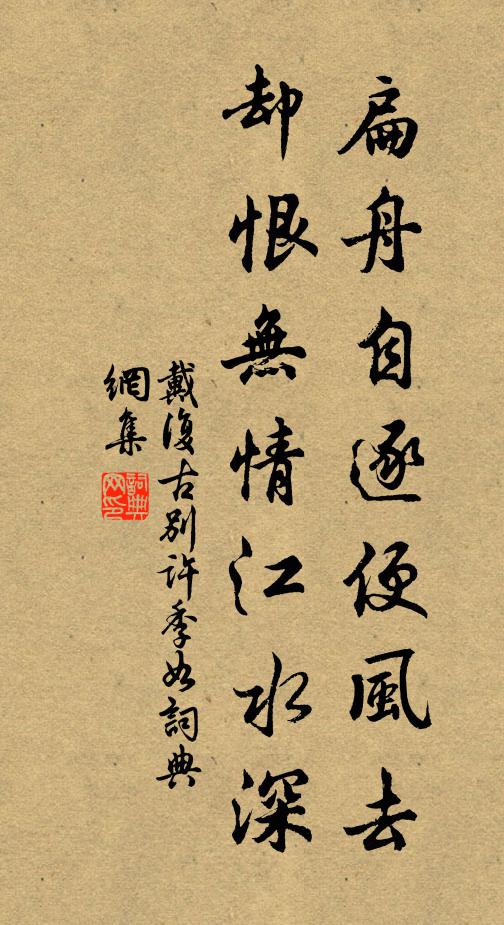 扁舟自逐便風去
却恨無情江水深
戴復古別許季如詞典
網集
詞典
网印